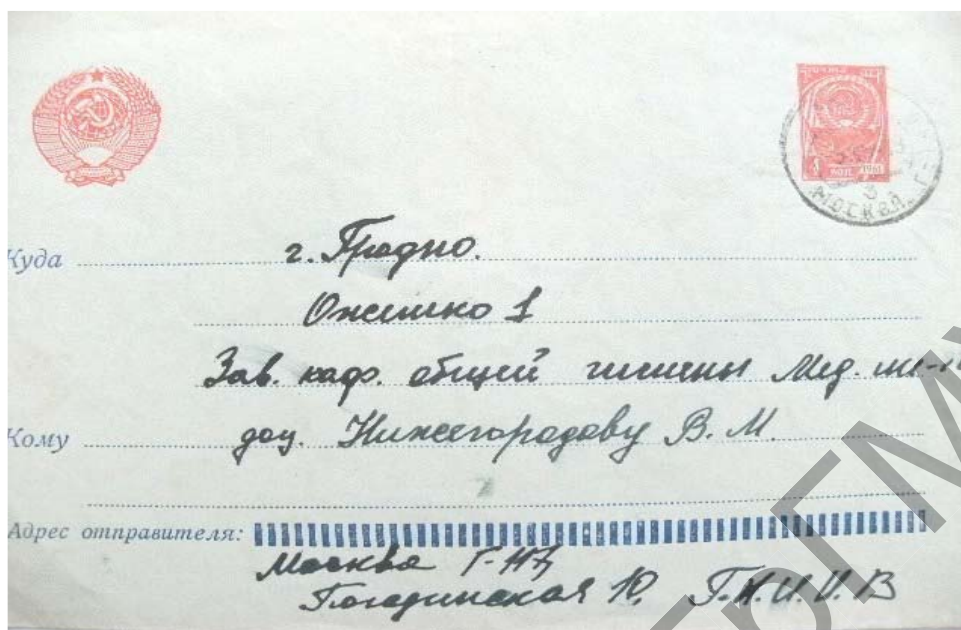 4 коп 1961
МОСКВА
Куда г. Гродно.
Ожешко 1
Зав. каф. общей гигиены Мед. ин-
Кому доц. Нижегородову В. М.
Адрес отправителя:
Москва Г-117,
Погодинская 10, Г.Н.И.И.В
ГрГМУ